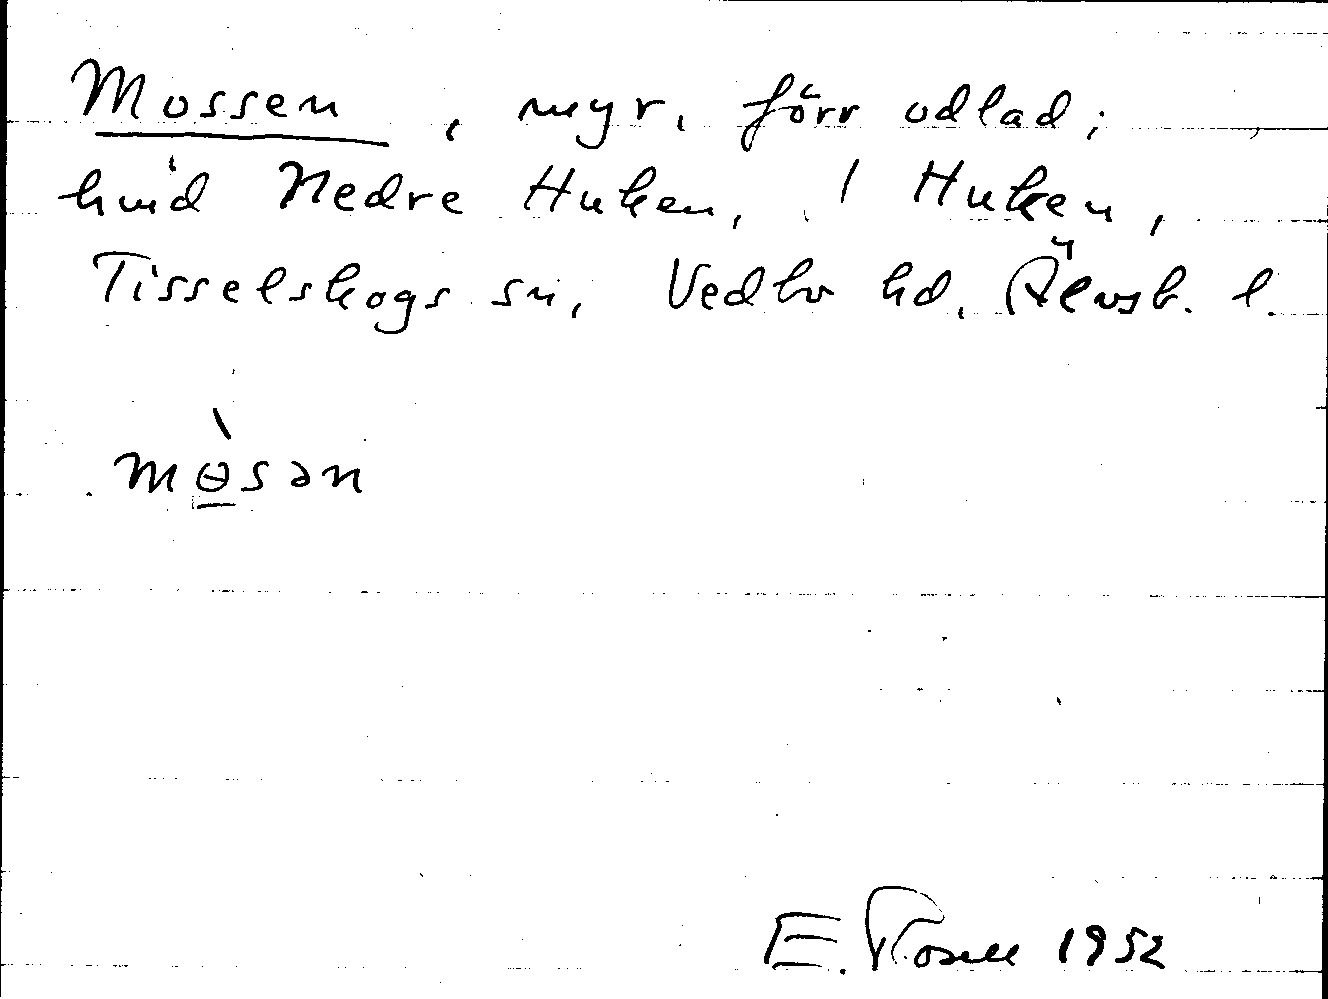 Mossen, myr, förr odlad;
hmd Nedre Huken, 1 Huken,
Tisselskogs sn, Vedbo hd, Älvsb. l.
mɵ̀sən
E. Rosell 1952